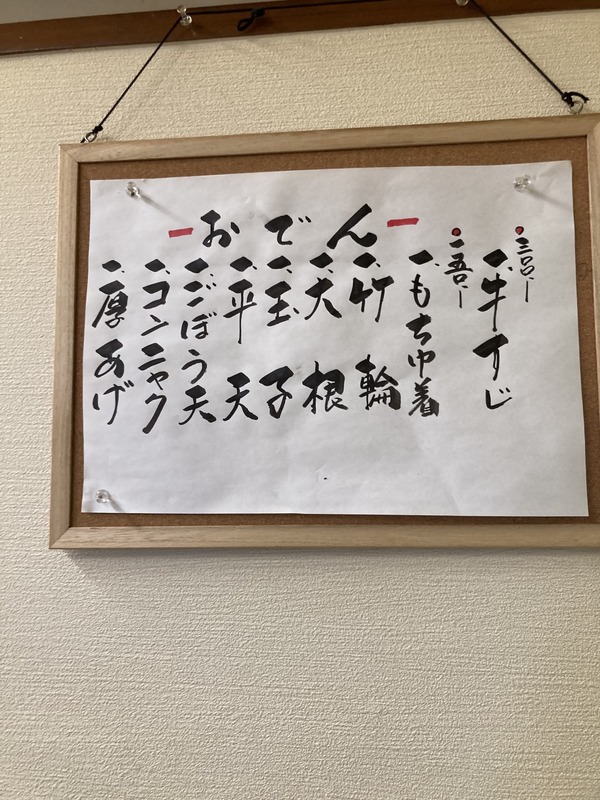 おでん
三〇〇ー
一、牛すじ
一五〇ー
一、もち巾着
一、竹輪
一、大根
一、玉子
一、平天
一、ごぼう天
一、コンニャク
一、厚あげ